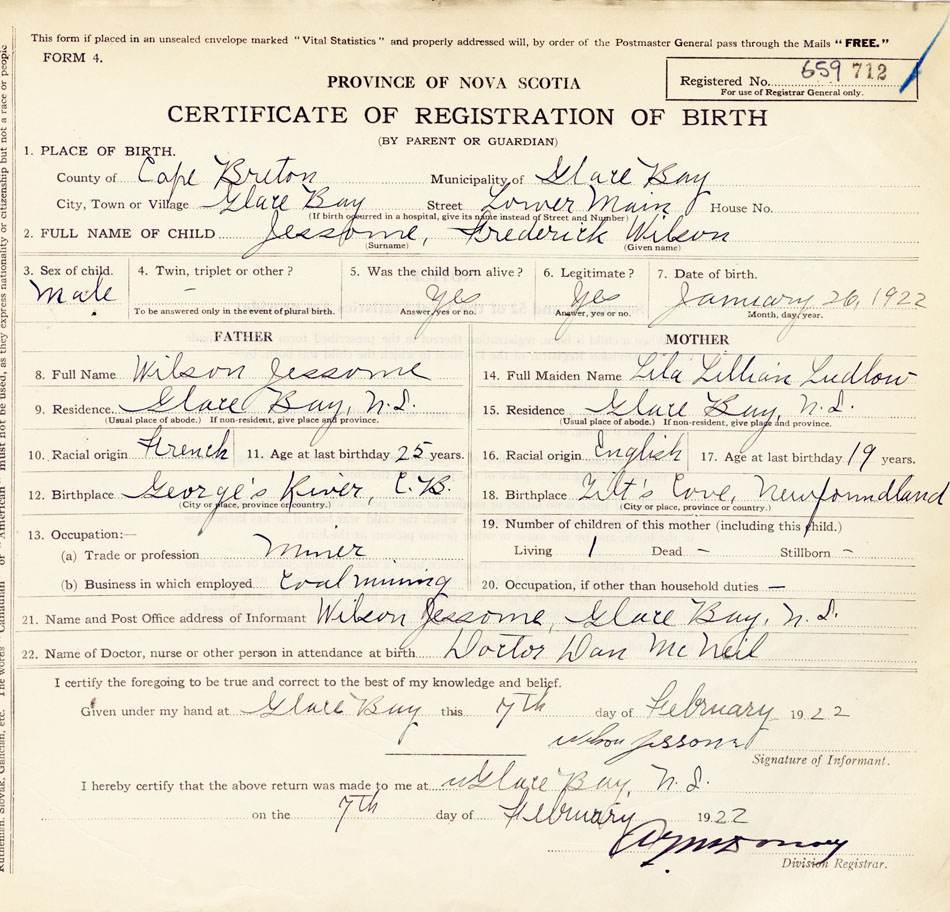 This form if placed in an unsealed envelope marked "Vital Statistics" and properly addressed will, by order of the Postmaster General pass through the Mails "FREE."
FORM 4.
PROVINCE OF NOVA SCOTIA
Registered No. 659 712
For use of Registrar General only.
CERTIFICATE OF REGISTRATION OF BIRTH
(BY PARENT OR GUARDIAN)
1. PLACE OF BIRTH.
County of Cape Breton Municipality of Glace Bay
City, Town or Village Glace Bay Street Lower Main House No.
(If birth occurred in a hospital, give its name instead of Street and Number)
2. FULL NAME OF CHILD Jessome, Frederick Wilson
(Surname) (Given name)
3. Sex of child. 4. Twin, triplet or other? 5. Was the child born alive? 6. Legitimate? 7. Date of birth.
Male - Yes Yes January 26, 1922
To be answered only in the event of plural birth. Answer, yes or no. Answer, yes or no. Month, day, year.
FATHER MOTHER
8. Full Name Wilson Jessome 14. Full Maiden Name Lila Lillian Ludlow
9. Residence Glace Bay, N.S. 15. Residence Glace Bay, N.S.
(Usual place of abode.) If non-resident, give place and province. (Usual place of abode.) If non-resident, give place and province.
10. Racial origin French 11. Age at last birthday 25 years. 16. Racial origin English 17. Age at last birthday 19 years.
12. Birthplace George's River, C.B. 18. Birthplace Tilt's Cove, Newfoundland
(City or place, province or country.) (City or place, province or country.)
13. Occupation:— 19. Number of children of this mother (including this child.)
(a) Trade or profession Miner Living 1 Dead - Stillborn -
(b) Business in which employed Coal mining 20. Occupation, if other than household duties —
21. Name and Post Office address of Informant Wilson Jessome, Glace Bay, N.S.
22. Name of Doctor, nurse or other person in attendance at birth Doctor Dan McNeil
I certify the foregoing to be true and correct to the best of my knowledge and belief.
Given under my hand at Glace Bay this 7th day of February 1922
Wilson Jessome
Signature of Informant.
I hereby certify that the above return was made to me at Glace Bay, N.S.
on the 7th day of February 1922
Division Registrar.